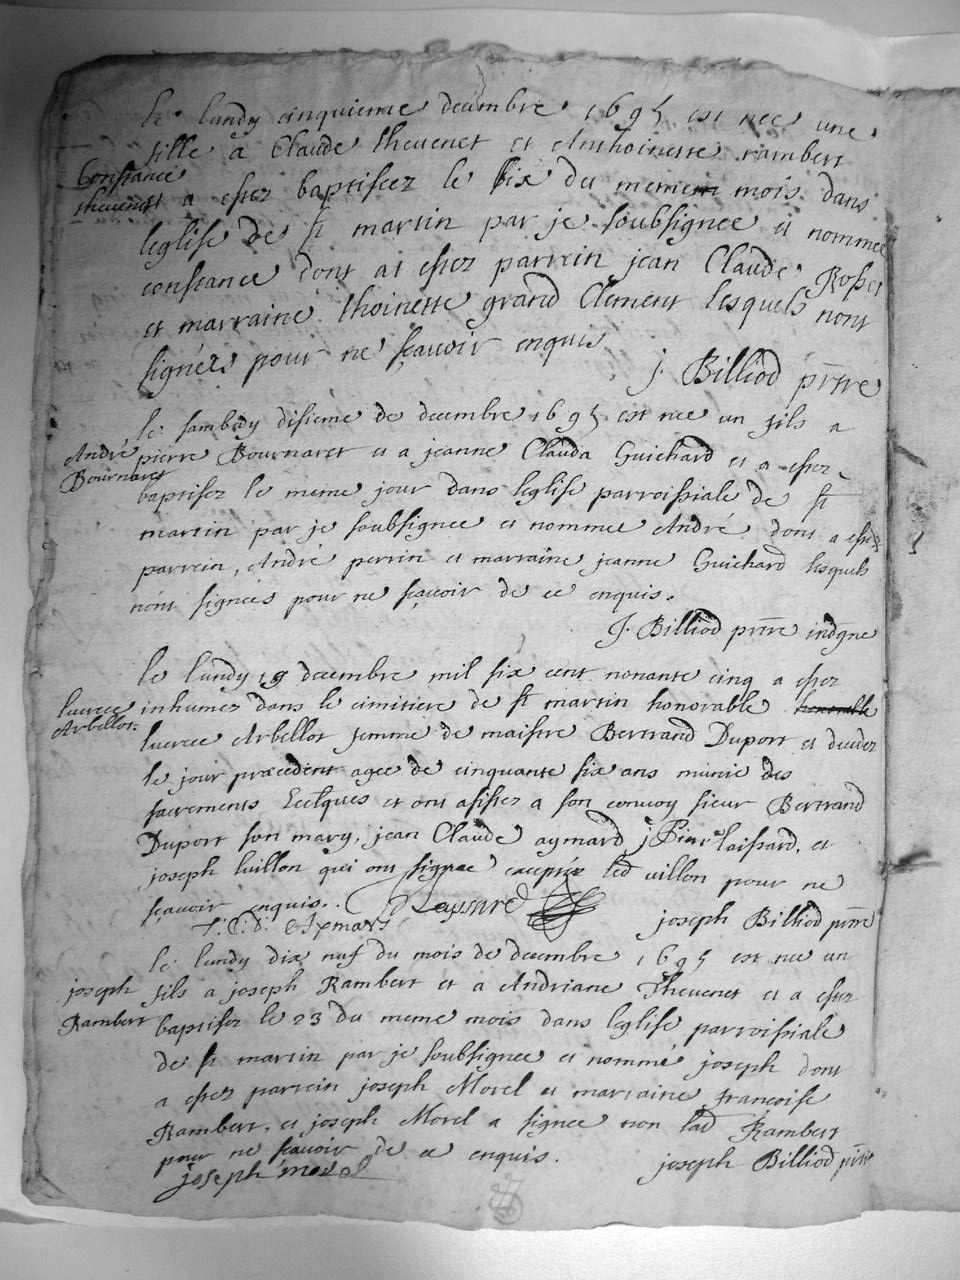 le lundy cinquieme decembre 1695 est nee une
fille a Claude thevenet et Anthoinette rambert
Constance
thevenet
a estez baptiseez le six du memem mois dans
leglise de st martin par je soubsignee et nommee
constance dont at estez parrein jean Claude Roset
et marraine thoinette grand Clement lesquels nont
signéez pour ne sçavoir enquis
J. Billiod prttre
le sambedy disieme de decembre 1695 est nee un fils a
André
Bournaret
pierre Bournaret et a jeanne Clauda Guichard et a estez
baptisez le meme jour dans leglise parroissiale de st
martin par je soubsignee et nommee André dont a estez
parrein, André perrin et marraine jeanne Guichard lesquels
nont signees pour ne sçavoir de ce enquis.
J. Billiod prttre indgne
le lundy 19 decembre mil six cent nonante cinq a estez
lucrece
Arbellot.
inhumez dans le cimitiere de st martin honorable honorable
lucrece Arbellot femme de maistre Bertrand Duport et decedez
le jour præcedent agee de cinquante six ans munie des
sacrements Ecclques et ont asistez a son convoy sieur Bertrand
Duport son mary, jean Claude aymard, j Pier laissard, et
joseph luillon qui ont signee exceptéz led villon pour ne
scavoir enquis.
J. C. d. Aymard
joseph Billiod prttre
le lundy dix nuf du mois de decembre 1695 est nee un
joseph
Rambert
fils a joseph Rambert et a Andriane Thevenet et a estez
baptisez le 23 du meme mois dans leglise parroissiale
de st martin par je soubsignee et nommé joseph dont
a estez parrein joseph Morel et marraine françoise
Rambert, et joseph Morel a signee non lad Rambert
pour ne scavoir de ce enquis.
joseph Billiod prttre
joseph morel